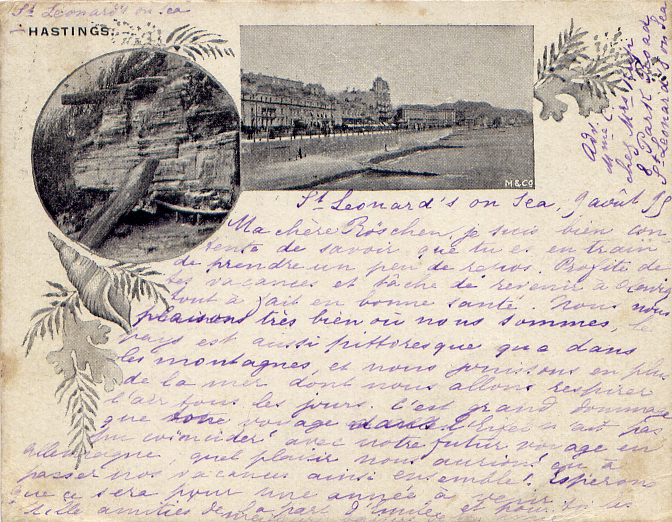 St Leonard's on Sea
HASTINGS.
chez Mrs
8 Park Road
St Leonard's on Sea
M&Co
St Leonard's on Sea, 9 août
Ma chère Röschen, je suis bien con
tente de savoir que tu es en train
de prendre un peu de repos. Profite de
tes vacances et tâche de revenir à
tout à fait en bonne santé. Nous nous
plaisons très bien où nous sommes, le
pays est aussi pittoresque que dans
les montagnes, et nous jouissons en plus
de la mer dont nous allons respirer
l'air tous les jours. C'est grand dommage
que ton voyage dans l'Eifel n'ait pas
pu coïncider avec notre futur voyage en
Allemagne, quel plaisir nous aurions eu à
passer nos vacances ainsi ensemble! Espérons
que ce sera pour une année à venir.
Mille amitiés de la part d'Emilie et pour toi les